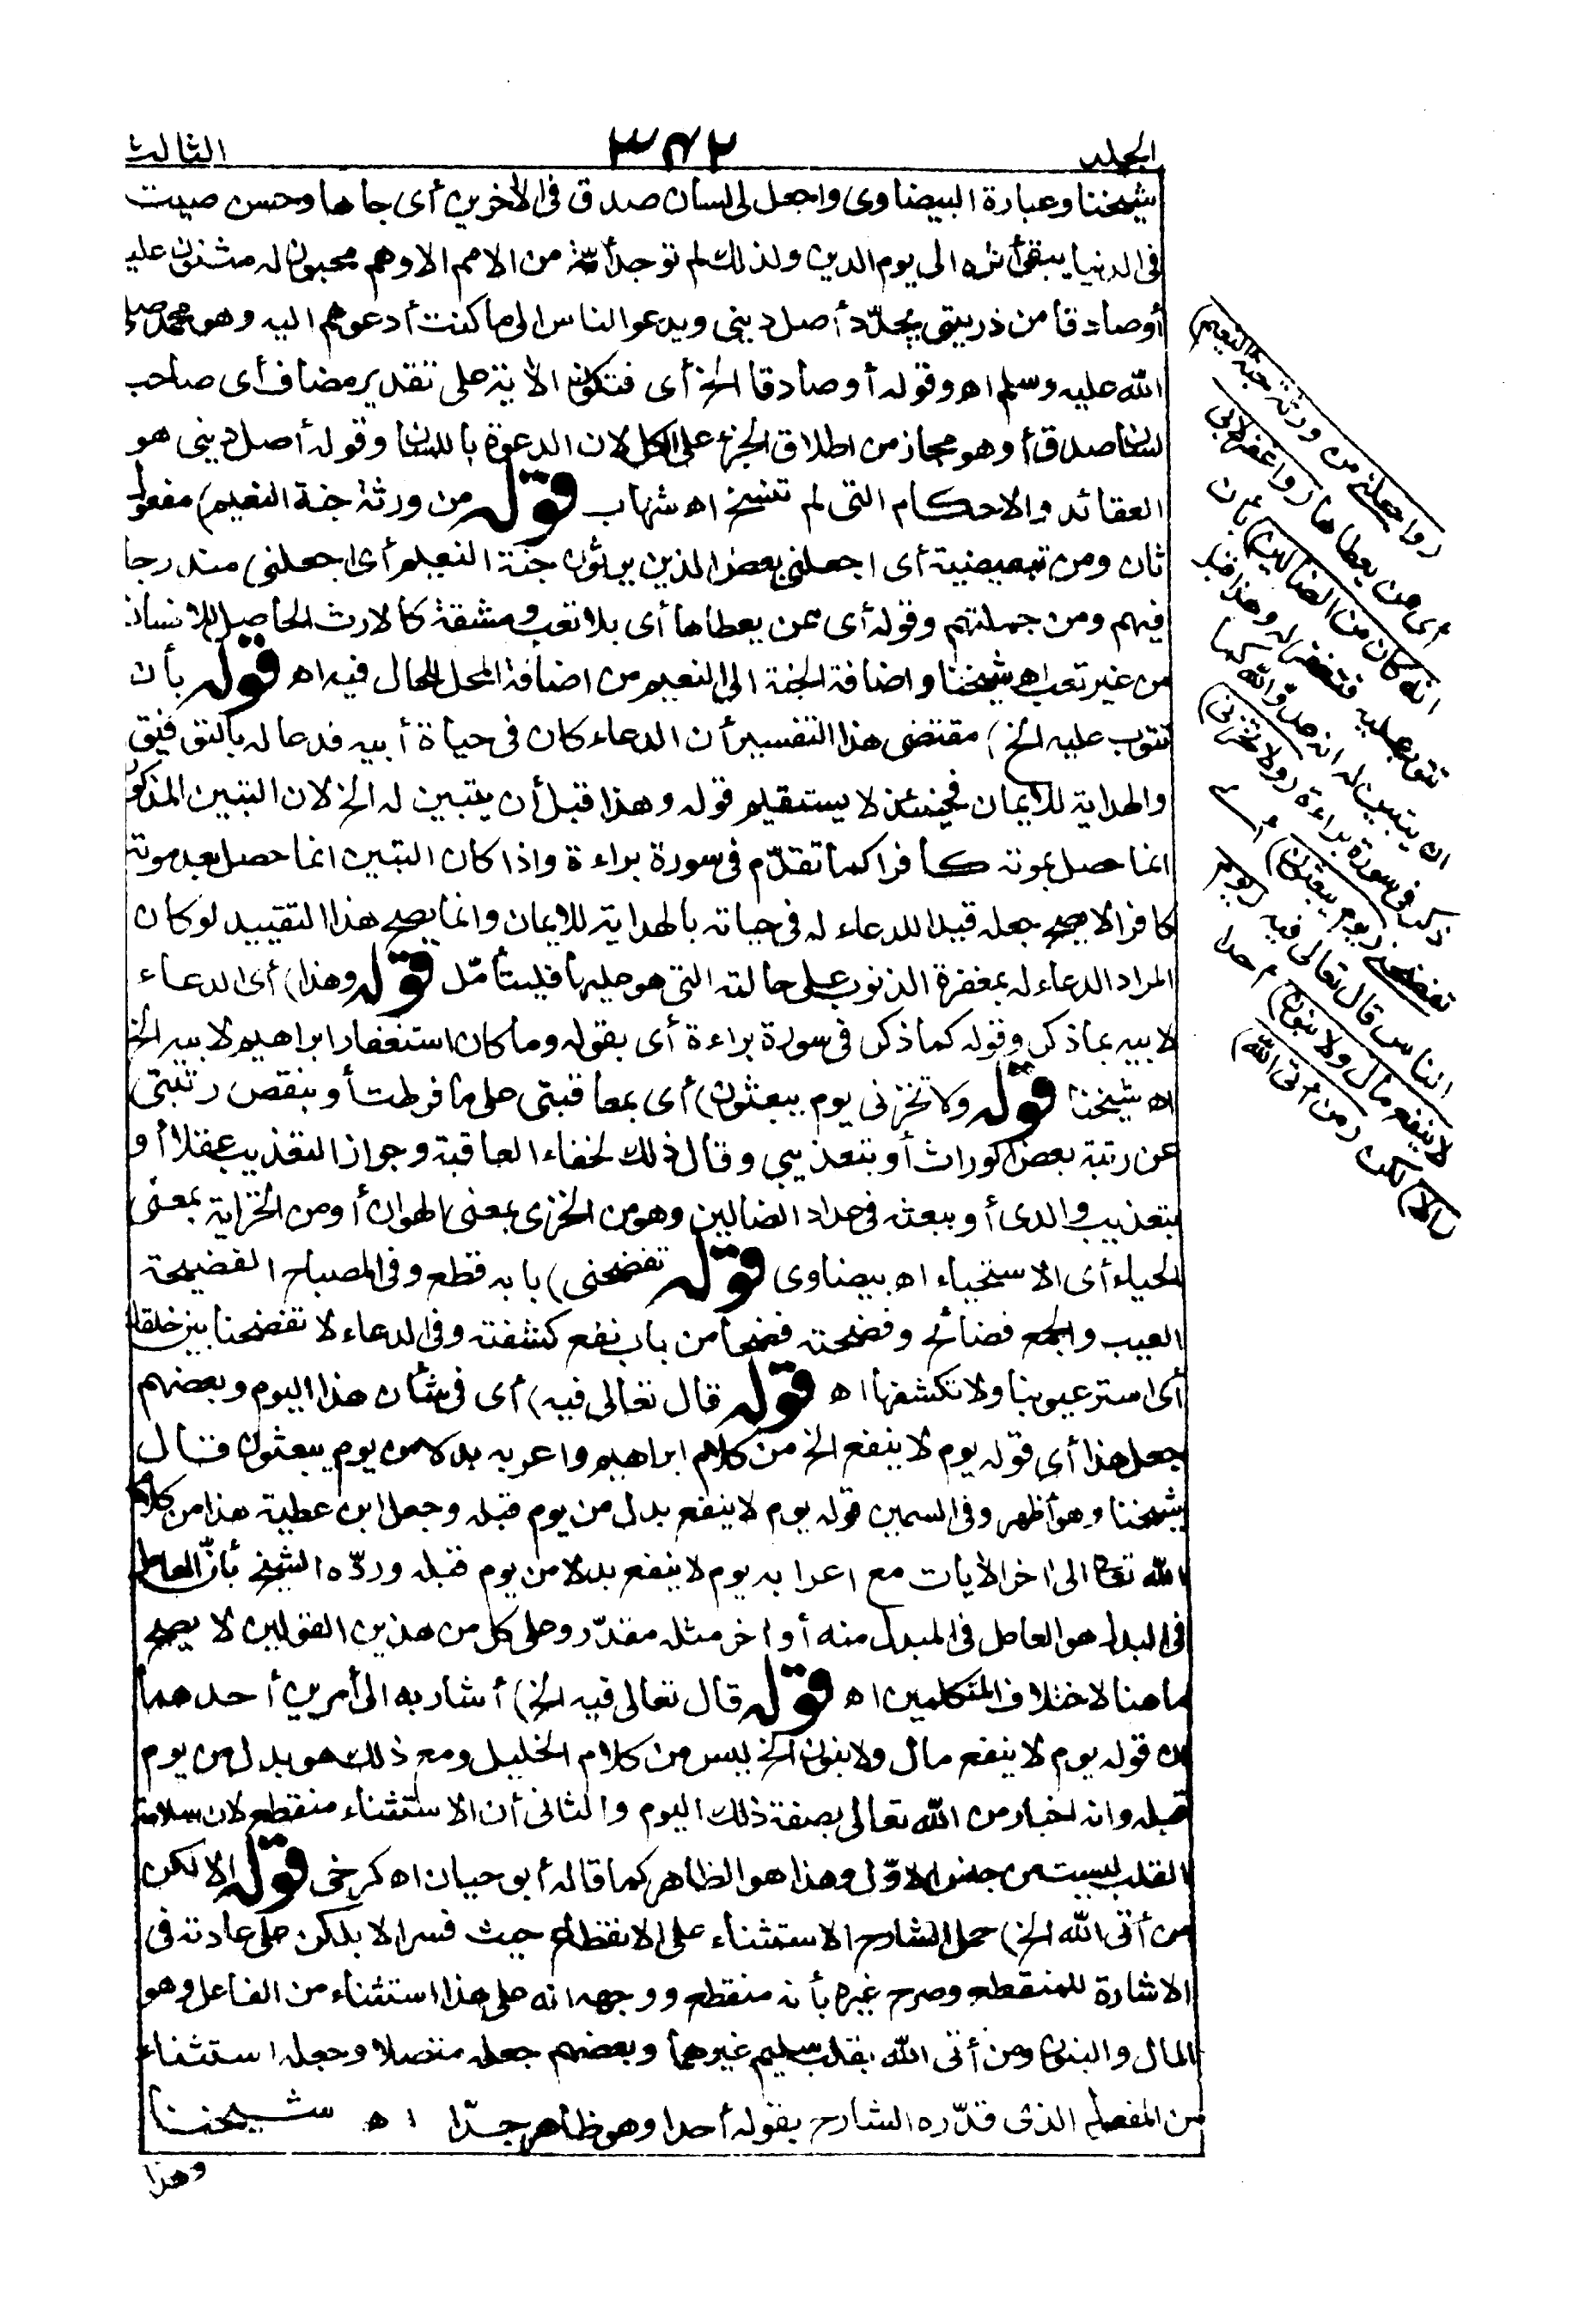 الجلد ٣٤٢ الثالث
شيخنا وعبارة البيضاوى واجعل لى لسان صدق فى الأخرين أى جاها وحسن صيت
فى الدنيا يبقى أثره الى يوم الدين ولذلك لم توجد أمّة من الامم الا وهم محبون له مثنون عليه
أوصادقا من ذريتى يجدّد أصل دينى ويدعو الناس الى ما كنت أدعوهم اليه وهو محمد صلى
الله عليه وسلم اه وقوله أوصادقا الخ أى فتكون الأية على تقدير مضاف أى صاحب
لسان صدق أو هو مجاز من اطلاق الجزء على الكل لان الدعوة باللسان وقوله أصل دينى هو
العقائد والاحكام التى لم تنسخ اه شهاب قوله من ورثة جنة النعيم) مفعول
ثان ومن تبعيضية أى اجعلنى بعض الذين يرثون جنة النعيم أى اجعلنى مندرجا
فيهم ومن جملتهم وقوله أى ممن يعطاها أى بلا تعب ومشقة كالارث الحاصل للانسان
من غير تعب اه شيخنا واضافة الجنة الى النعيم من اضافة المحل للحال فيه اه قوله بأن
تتوب عليه الخ) مقتضى هذا التفسير أن الدعاء كان فى حياة أبيه فدعا له بالتوفيق
والهداية للايمان فحينئذ لا يستقيم قوله وهذا قبل أن يتبين له الخ لان التبين المذكور
انما حصل بموته كافرا كما تقدّم فى سورة براءة واذا كان التبين انما حصل بعد موته
كافرا لا يصح جعله قيدا للدعاء له فى حياته بالهداية للايمان وانما يصح هذا التقييد لو كان
المراد الدعاء له بمغفرة الذنوب على حالته التى هو عليها فليتأمّل قوله وهذا) أى الدعاء
لابيه بما ذكر وقوله كما ذكر فى سورة براءة أى بقوله وما كان استغفار ابراهيم لابيه الخ
اه شيخنا قوله ولا تخزنى يوم يبعثون) أى بمعاقبتى على ما فرطت أو بنقص رتبتى
عن رتبة بعض الوراث أو بتعذيبى وقال ذلك لخفاء العاقبة وجواز التعذيب عقلا أو
بتعذيب والدى أو ببعثه فى عداد الضالين وهو من الخزى بمعنى الهوان أو من الخزاية بمعنى
الحياء أى الاستحياء اه بيضاوى قوله تفضحنى) بابه قطع وفى المصباح الفضيحة
العيب والجمع فضائح وفضحته فضحا من باب نفع كشفته وفى الدعاء لا تفضحنا بين خلقك
أى استر عيوبنا ولا تكشفها اه قوله قال تعالى فيه) أى فى شأن هذا اليوم وبعضهم
جعل هذا أى قوله يوم لا ينفع الخ من كلام ابراهيم واعربه بدلا من يوم يبعثون قال
شيخنا وهو أظهر وفى السمين قوله يوم لا ينفع بدل من يوم قبله وجعل ابن عطية هذا من كلام
الله تعا الى اخر الأيات مع اعرابه يوم لا ينفع بدلا من يوم قبله وردّه الشيخ بأنّ العامل
فى البدل هو العامل فى المبدل منه أو اخر مثله مقدّر وعلى كل من هذين القولين لا يصح
ما هنا لاختلاف المتكلمين اه قوله قال تعالى فيه الخ) أشار به الى أمرين أحدهما
من قوله يوم لا ينفع مال ولا بنون الخ ليس من كلام الخليل ومع ذلك هو بدل من يوم
قبله وانه اخبار من الله تعالى بصفة ذلك اليوم والثانى أن الاستثناء منقطع لان سلامة
القلب ليست من جنس الاوّل وهذا هو الظاهر كما قاله أبو حيان اه كرخى قوله الا لكن
من أتى الله الخ) حمل الشارح الاستثناء على الانقطاع حيث فسر الا بلكن على عادته فى
الاشارة للمنقطع وصرح غيره بأنه منقطع ووجهه انه على هذا استثناء من الفاعل وهو
المال والبنون ومن أتى الله بقلب سليم غيرهما وبعضهم جعله متصلا وجعله استثناء
من المفعول الذى قدّره الشارح بقوله أحدا وهو ظاهر جدّا اه شيخنا
وهذا
(واجعلنى من ورثة جنة النعيم)
أى من يعطاها (واغفر لابى
انه كان من الضالين) بأن
تتوب عليه فتغفر له وهذا قبل
ان يتبين له انه عدوّ الله كما
ذكر فى سورة براءة (ولا تخزنى)
تفضحنى (يوم يبعثون) أى
الناس قال تعالى فيه (يوم
لا ينفع مال ولا بنون) أحدا
(الا) لكن (من أتى الله)